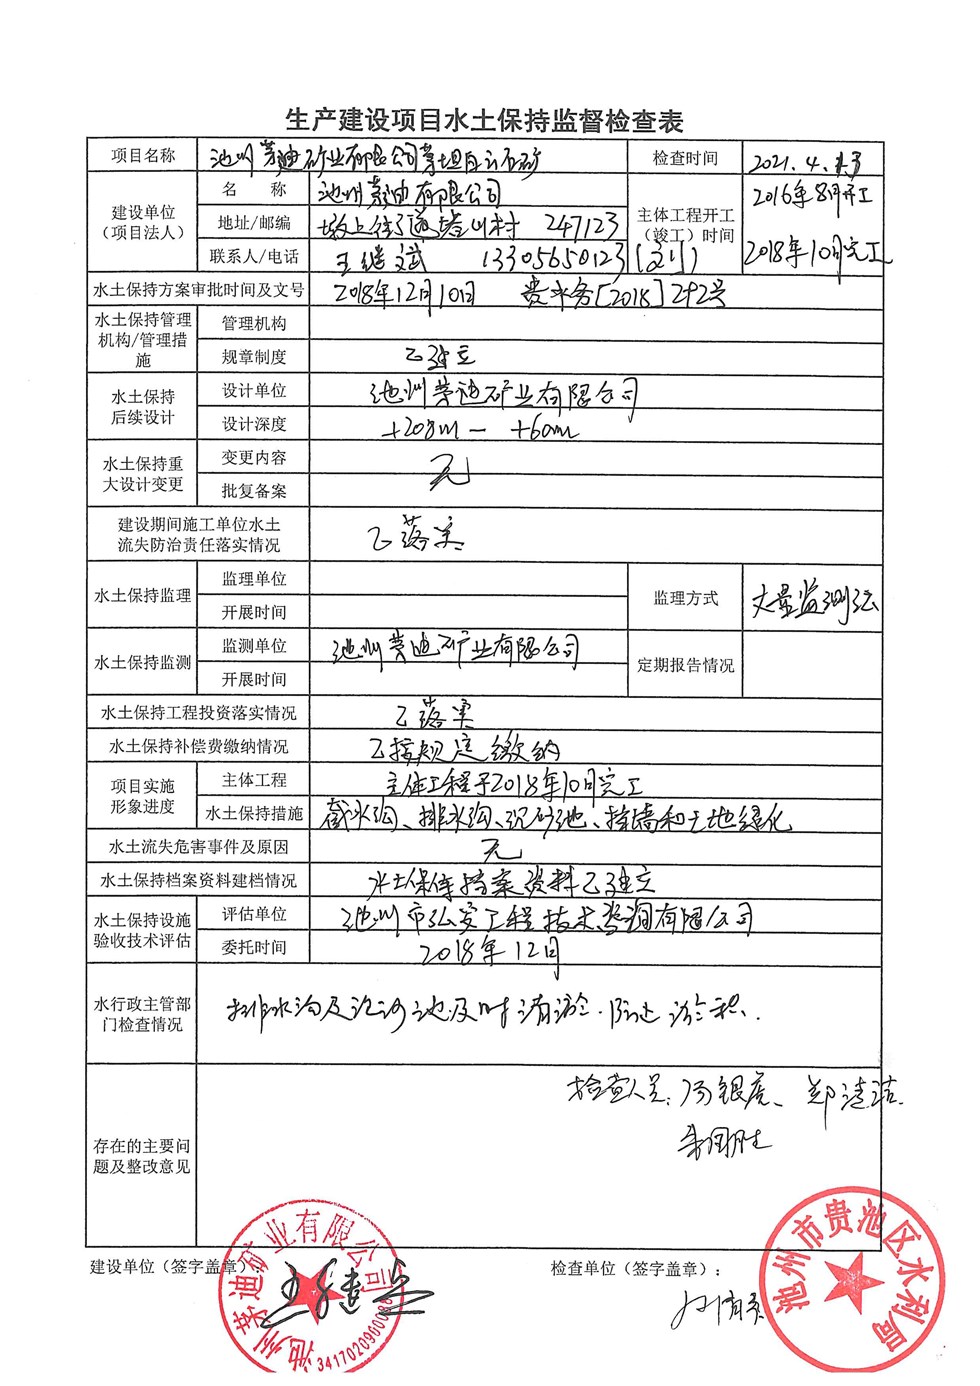 生产建设项目水土保持监督检查表
项目名称 池州茅迪矿业有限公司茅坦白云石矿 检查时间 2021.4.
建设单位（项目法人） 名 称 池州茅迪有限公司 主体工程开工（竣工）时间 2016年8月开工
地址/邮编 墩上街道塔山村 247123
联系人/电话 王继斌 13305650123 2018年10月完工
水土保持方案审批时间及文号 2018年12月10日 贵水务[2018]292号
水土保持管理机构/管理措施 管理机构
规章制度 已建立
水土保持后续设计 设计单位 池州茅迪矿业有限公司
设计深度 +208m— +60m
水土保持重大设计变更 变更内容 无
批复备案
建设期间施工单位水土流失防治责任落实情况 已落实
水土保持监理 监理单位 监理方式 丈量监测法
开展时间
水土保持监测 监测单位 池州茅迪矿业有限公司 定期报告情况
开展时间
水土保持工程投资落实情况 已落实
水土保持补偿费缴纳情况 已按规定缴纳
项目实施形象进度 主体工程 主体工程于2018年10月完工
水土保持措施 截水沟、排水沟、沉砂池、挡墙和土地绿化
水土流失危害事件及原因 无
水土保持档案资料建档情况 水土保持档案资料已建立
水土保持设施验收技术评估 评估单位 池州市弘安工程技术咨询有限公司
委托时间 2018年12月
水行政主管部门检查情况 排水沟及沉沙池及时清淤.防止淤积.
存在的主要问题及整改意见 检查人员:
建设单位（签字盖章）:
检查单位（签字盖章）:
池州茅迪矿业有限公司
池州市贵池区水利局